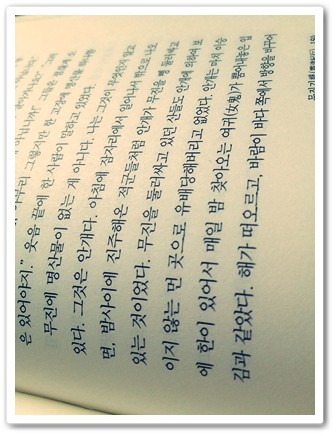 은 있어야지." 웃음 끝에 한 사람이 말하고 있었다.
무진에 명산물이 없는 게 아니다. 나는 그것이 무엇인지 알고
있다. 그것은 안개다. 아침에 잠자리에서 일어나서 밖으로 나오
면, 밤사이에 진주해온 적군들처럼 안개가 무진을 뺑 둘러싸고
있는 것이었다. 무진을 둘러싸고 있던 산들도 안개에 의하여 보
이지 않는 먼 곳으로 유배당해버리고 없었다. 안개는 마치 이승
에 한이 있어서 매일 밤 찾아오는 여귀(女鬼)가 뿜어내놓은 입
김과 같았다. 해가 떠오르고, 바람이 바다 쪽에서 방향을 바꾸어
무진기행